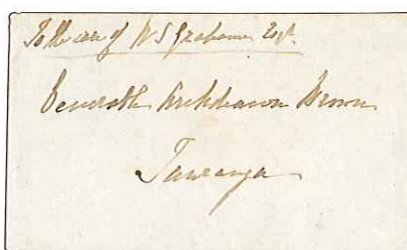 To the care of W S Grahame Esqr.
Archdeacon Brown
Tauranga